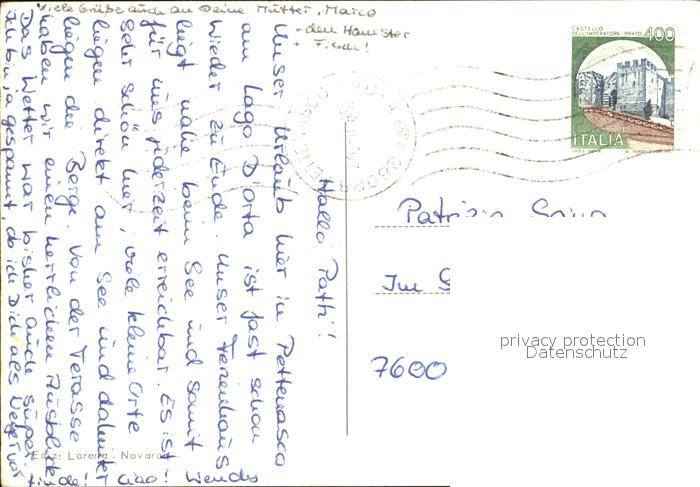 Viele Grüße auch an Deine Mutter, Marco
+ den Hamster
+ Fisch!
Hallo Pathi!
Unser Urlaub hier in Pettenasco
am Lago D'orta ist fast schon
wieder zu Ende. Unser Ferienhaus
liegt nahe beim See und somit
für uns jederzeit erreichbar. Es ist
sehr schön hier; viele kleine Orte
liegen direkt am See und dahinter
liegen die Berge. Von der Terasse
haben wir einen herrlichen Ausblick.
Das Wetter war bisher auch super.
Ich bin ja gespannt, ob ich Dich als
finde! Ciao! Wendy
CASTELLO
DELL'IMPERATORE - PRATO 400
ITALIA
28028 PETTENASCO
Patrizia
Im
7600
privacy protection
Datenschutz
Ediz. Lorena - Novara